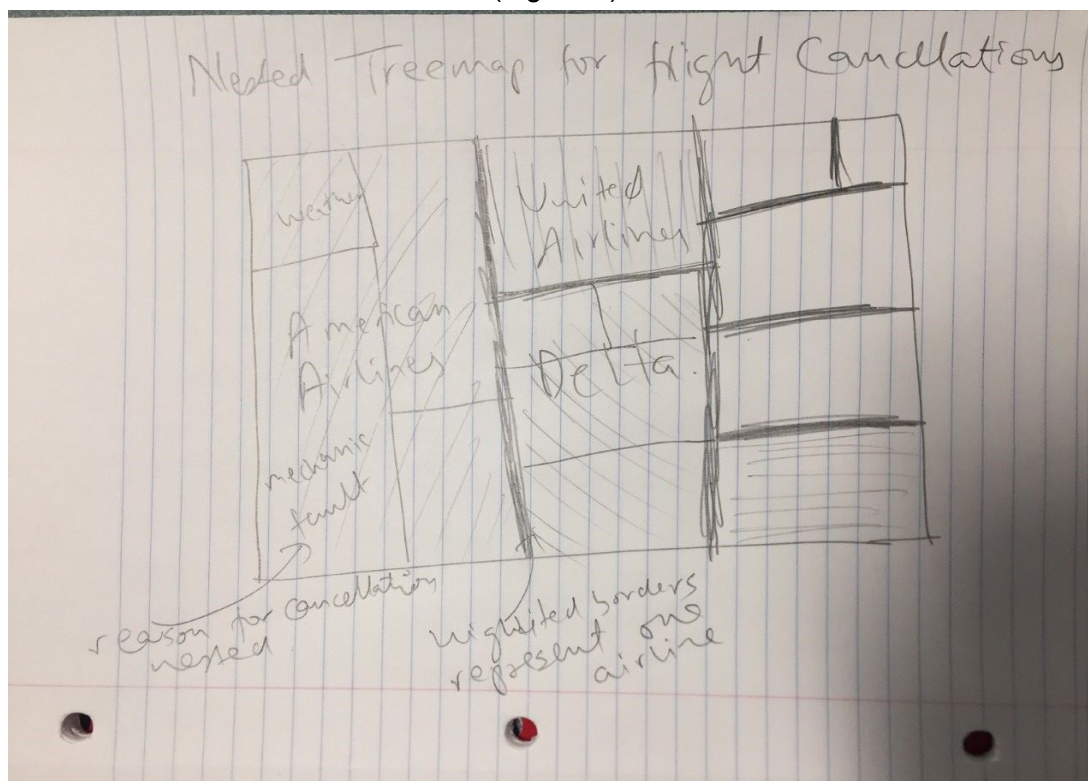 Nested Treemap for flight Cancellations
weather
American
Airlines
mechanic
fault
United
Airlines
Delta
reason for cancellation
nested
highlited borders
represent one
airline